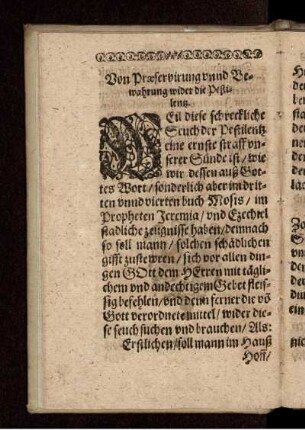 Von Præservirung vnnd Be-
wahrung wider die Pesti-
lentz.
WEil diese schreckliche
Seuch der Pestilentz
eine ernste straff vn-
serer Sünde ist / wie
wir dessen auß Got-
tes Wort / sonderlich aber im drit-
ten vnnd vierten buch Mosis / im
Propheten Jeremia / vnd Ezechiel
stadliche zeugnisse haben / demnach
so soll mann / solchen schädlichen
gifft zu stewren / sich vor allen din-
gen GOtt dem HErren mit tägli-
chem vnd andechtigem Gebet fleis-
sig befehlen / vnd denn ferner die vō
Gott verordnete mittel / wider die-
se seuch suchen vnd brauchen / Als:
Erstlichen / soll mann im Hauß
Hoff /